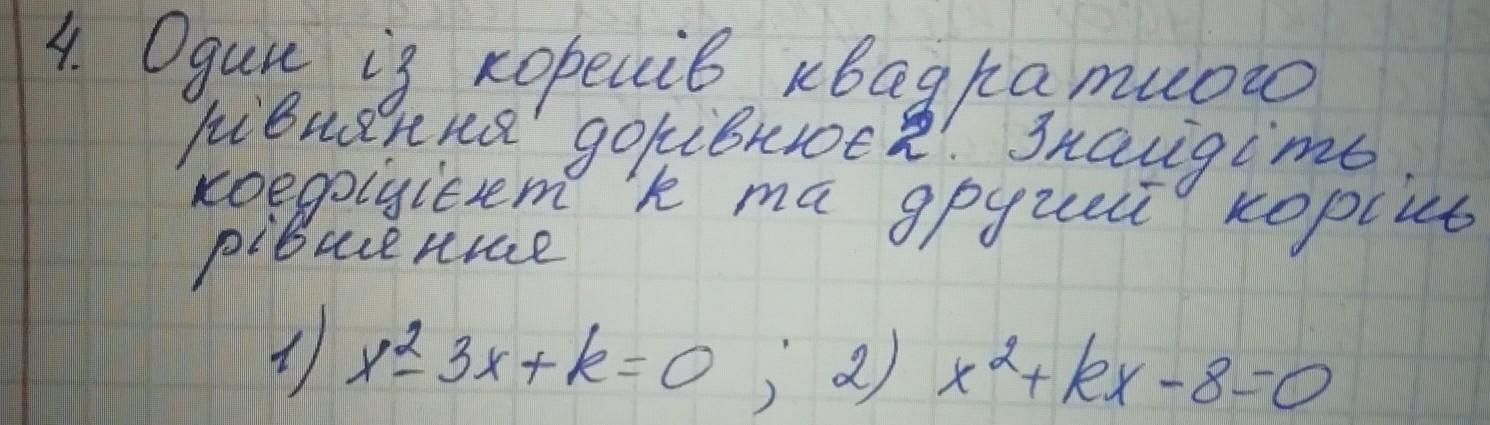 4. Один із коренів квадратного
рівняння дорівнює 2. Знайдіть
коефіцієнт k та другий корінь
рівняння
1) x² - 3x + k = 0 ; 2) x² + kx - 8 = 0